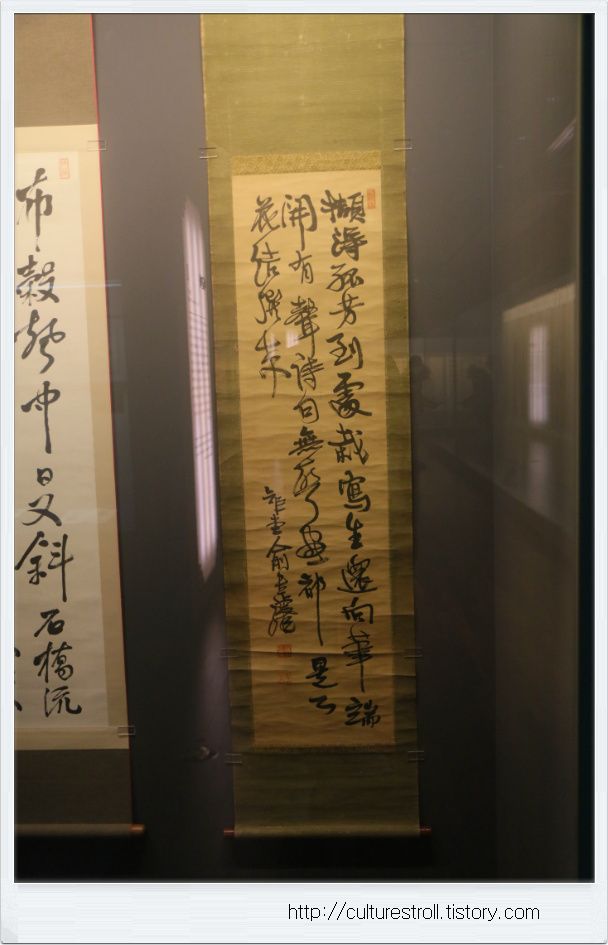 擷得孤芳到處栽寫生還向筆端
開有聲詩句無聲畫都是心
花結撰來
矩堂兪吉濬
布穀聲中日又斜石橋流
http://culturestroll.tistory.com